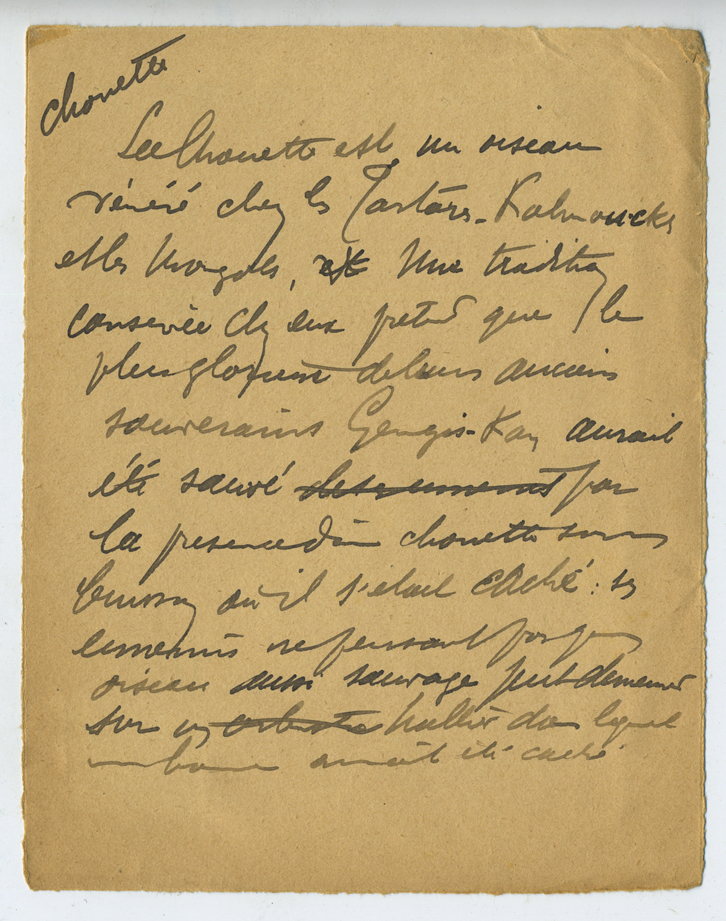 chouette
La Chouette est un oiseau
vénéré chez les Tartares-Kalmoucks
et les Mongols, Une tradition
conservée chez eux prétend que le
plus glorieux de leurs anciens
souverains Gengis-Kan aurait
été sauvé des ennemis par
la presence d'une chouette sur un
buisson où il s'etait caché : ses
ennemis ne pensant pas qu'un
oiseau aussi sauvage put demeurer
sur un arbuste hallier dans lequel
un homme aurait été caché.